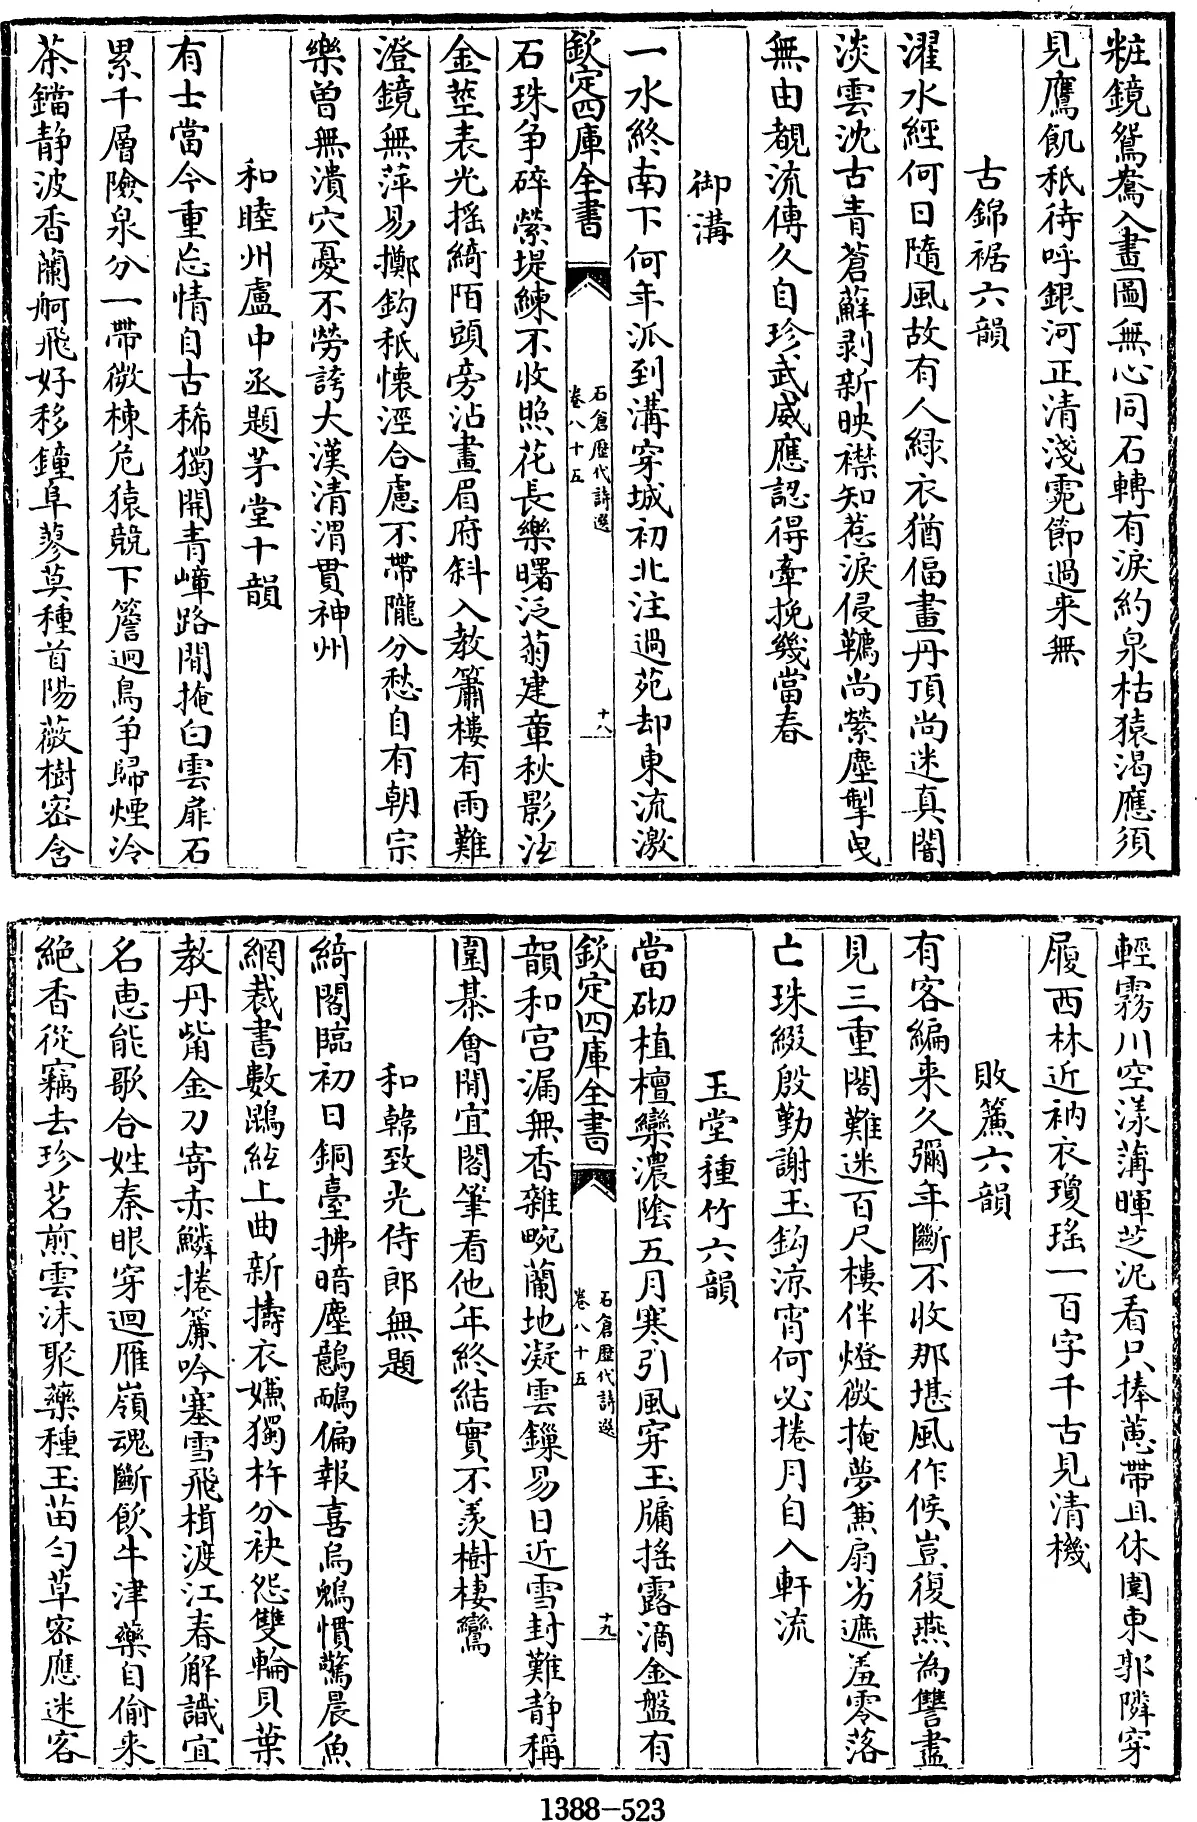 粧鏡鴛鴦入畫圖無心同石轉有淚約泉枯猿渴應須
見鷹飢秪待呼銀河正清淺霓節過来無
古錦裾六韻
濯水經何日隨風故有人緑衣猶偪畫丹頂尚迷真闇
淡雲沈古青蒼蘚剥新映襟知惹淚侵韉尚縈塵掣曳
無由覩流傳久自珍武威應認得牽挽幾當春
御溝
一水終南下何年派到溝穿城初北注過苑却東流激
欽定四庫全書
石倉歷代詩選
卷八十五
十八
石珠争碎縈堤練不收照花長樂曙泛菊建章秋影泫
金莖表光搖綺陌頭旁沾畫眉府斜入教簫樓有雨難
澄鏡無萍易擲鈎秪懐涇合慮不帶隴分愁自有朝宗
樂曾無潰穴憂不勞誇大漢清渭貫神州
和睦州盧中丞題茅堂十韻
有士當今重忘情自古稀獨開青嶂路閒掩白雲扉石
累千層險泉分一帶微棟危猿競下簷迥鳥争歸煙冷
茶鐺静波香蘭舸飛好移鐘阜蓼莫種首陽薇樹密含
輕霧川空漾薄暉芝泥看只捧蕙帶且休圍東郭隣穿
履西林近衲衣瓊瑤一百字千古見清機
敗簾六韻
有客編来久彌年斷不收那堪風作候豈復燕為讐盡
見三重閤難迷百尺樓伴燈微掩夢兼扇劣遮羞零落
亡珠綴殷勤謝玉鈎涼宵何必捲月自入軒流
玉堂種竹六韻
當砌植檀欒濃陰五月寒引風穿玉牖搖露滴金盤有
欽定四庫全書
石倉歷代詩選
卷八十五
十九
韻和宫漏無香雜畹蘭地凝雲鏁易日近雪封難静稱
圍棊會閒宜閣筆看他年終結實不羡樹棲鸞
和韓致光侍郎無題
綺閣臨初日銅臺拂暗塵鸊鵜偏報喜烏鵶慣驚晨魚
網裁書數鵾絃上曲新擣衣嫌獨杵分袂怨雙輪貝葉
教丹觜金刀寄赤鱗捲簾吟塞雪飛楫渡江春解識宜
名恵能歌合姓秦眼穿迴雁嶺魂斷飲牛津藥自偷来
絶香從竊去珍茗煎雲沫聚藥種玉苗匀草密應迷客
1388—523